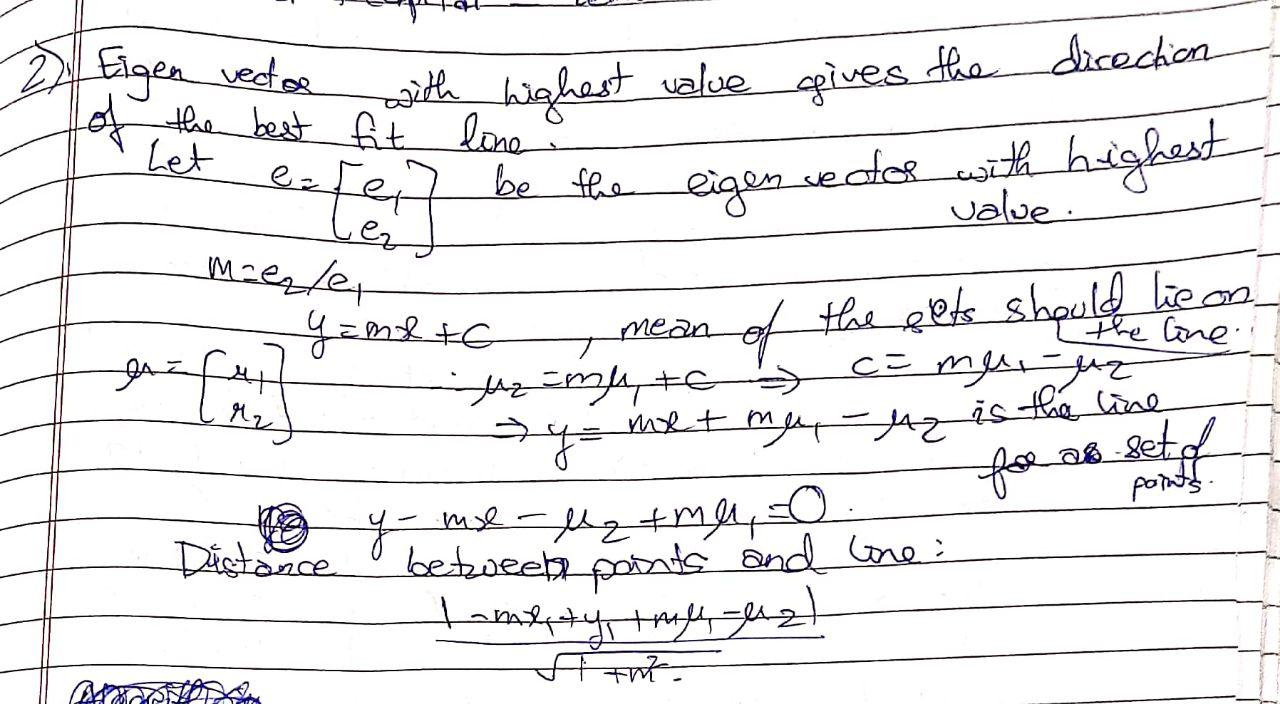 2) Eigen vector with highest value gives the direction
of the best fit line.
Let e = [e₁ e₂] be the eigen vector with highest
value.
m = e₂/e₁
y = mx + c , mean of the sets should lie on
the line.
μ = [μ₁ μ₂] ∴ μ₂ = mμ₁ + c ⇒ c = mμ₁ - μ₂
⇒ y = mx + mμ₁ - μ₂ is the line
for as set of
points.
y - mx - μ₂ + mμ₁ = 0.
Distance between points and line:
|-mx₁ + y₁ + mμ₁ - μ₂|
√1 + m².